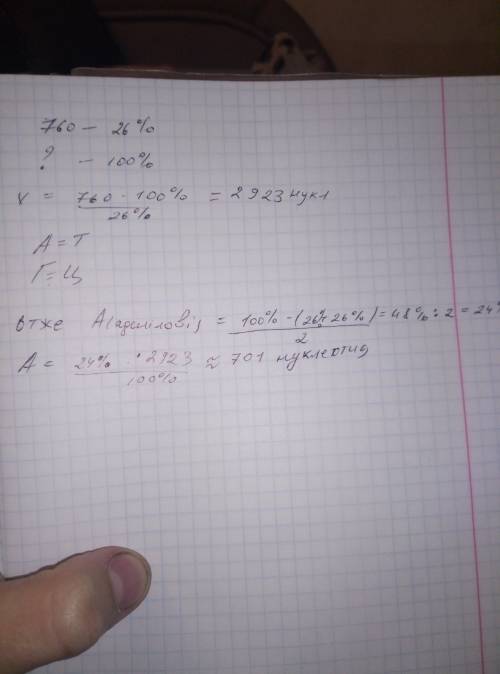 760 – 26%
? – 100%
x = 760 · 100% / 26% = 2923 нукл
А = Т
Г = Ц
отже А(аденілові) = 100% – (26% + 26%) / 2 = 48% : 2 = 24%
А = 24% · 2923 / 100% ≈ 701 нуклеотид